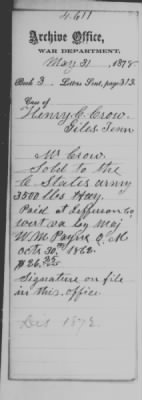 4611
Archive Office,
WAR DEPARTMENT,
May 31 1878
Book 3 - Letters Sent, page 313.
Case of
Henry C. Crow.
Giles Tenn
Mr Crow.
Sold to the
C States army
3500 lbs Hay.
Paid at Jefferson Co
west va by Maj
W. M. Payne Q. M
octr 30th 1862.
$26.25
Signature on file
in this office
Dis 1878